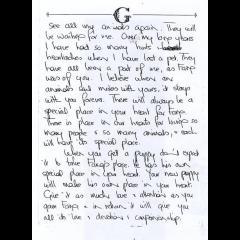 G
see all my animals again. They
will be waiting for me. Over my long years
I have had so many hurts &
heartaches when I have lost a pet, they
have all been a part of me, so Fango
was of you. I believe when an
animals soul mixes with yours, it stays
with you forever. There will always be a
special place in your heart for Fango.
There is place in our hearts for loving so
many people & so many animals, & each
will have its special place.
When you get a puppy don't expect
it to take Fango's place. He has his own
special place in your heart. Your new puppy
will make his own place in your heart.
Give it as much love & attention as you
gave Fango & in return it will give you
all its love & devotion & companionship.